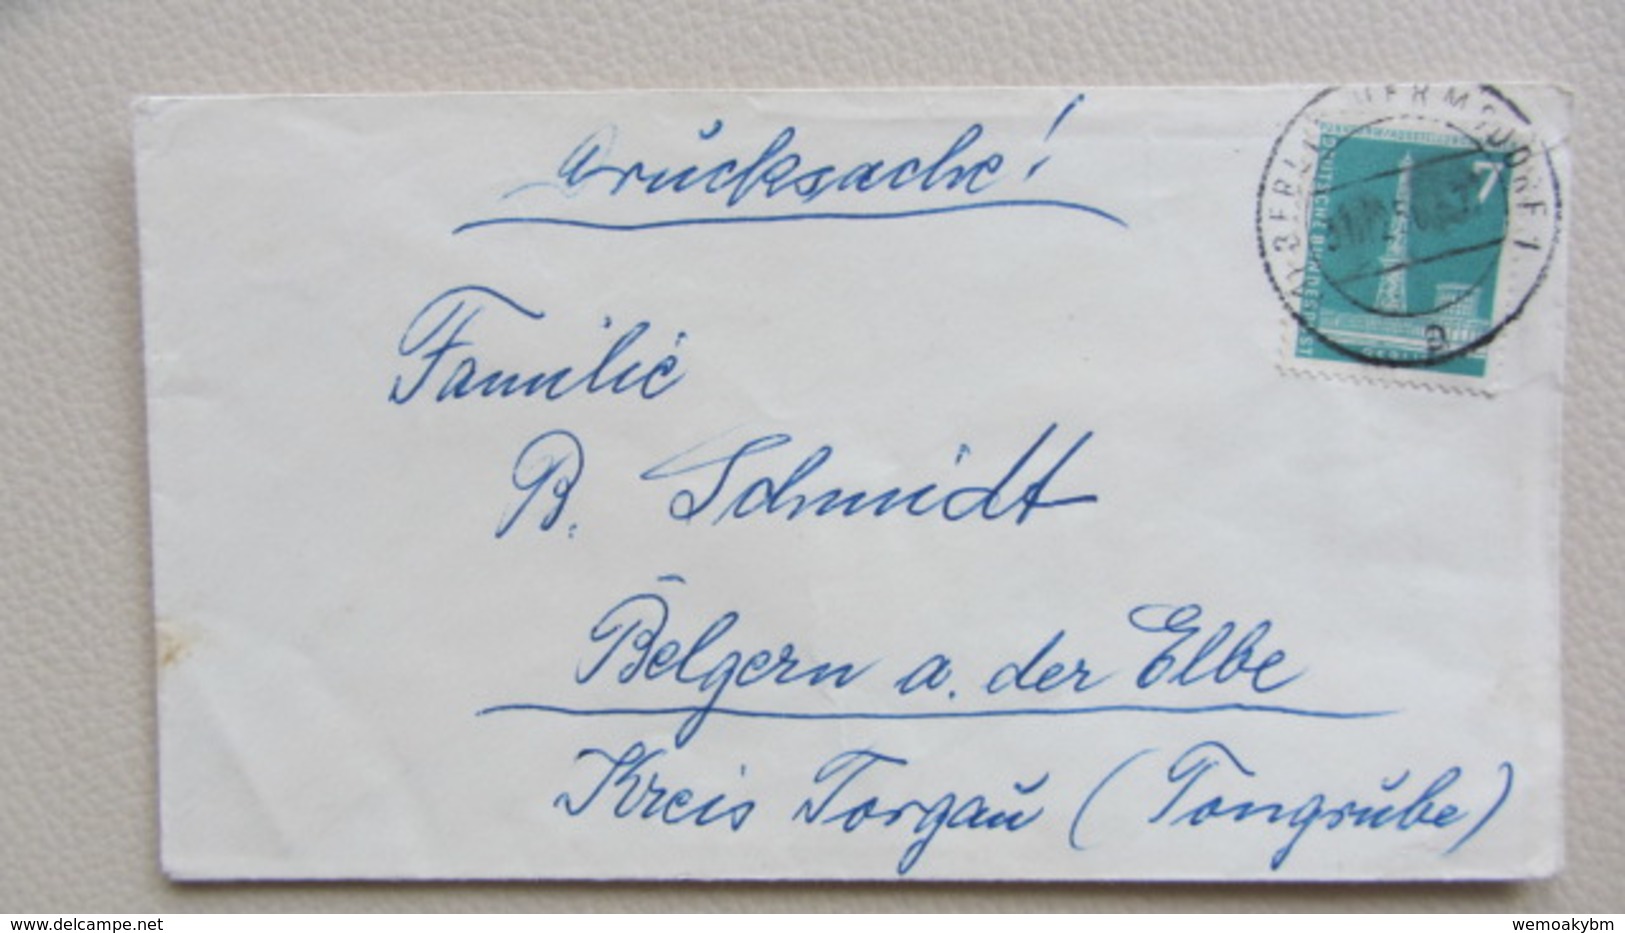 Drucksache!
BERLIN HERMSDORF 1
7
DEUTSCHE BUNDESPOST
BERLIN
a
Familie
B. Schmidt
Belgern a. der Elbe
Kreis Torgau (Tongrube)
www.delcampe.net
wemoakybm